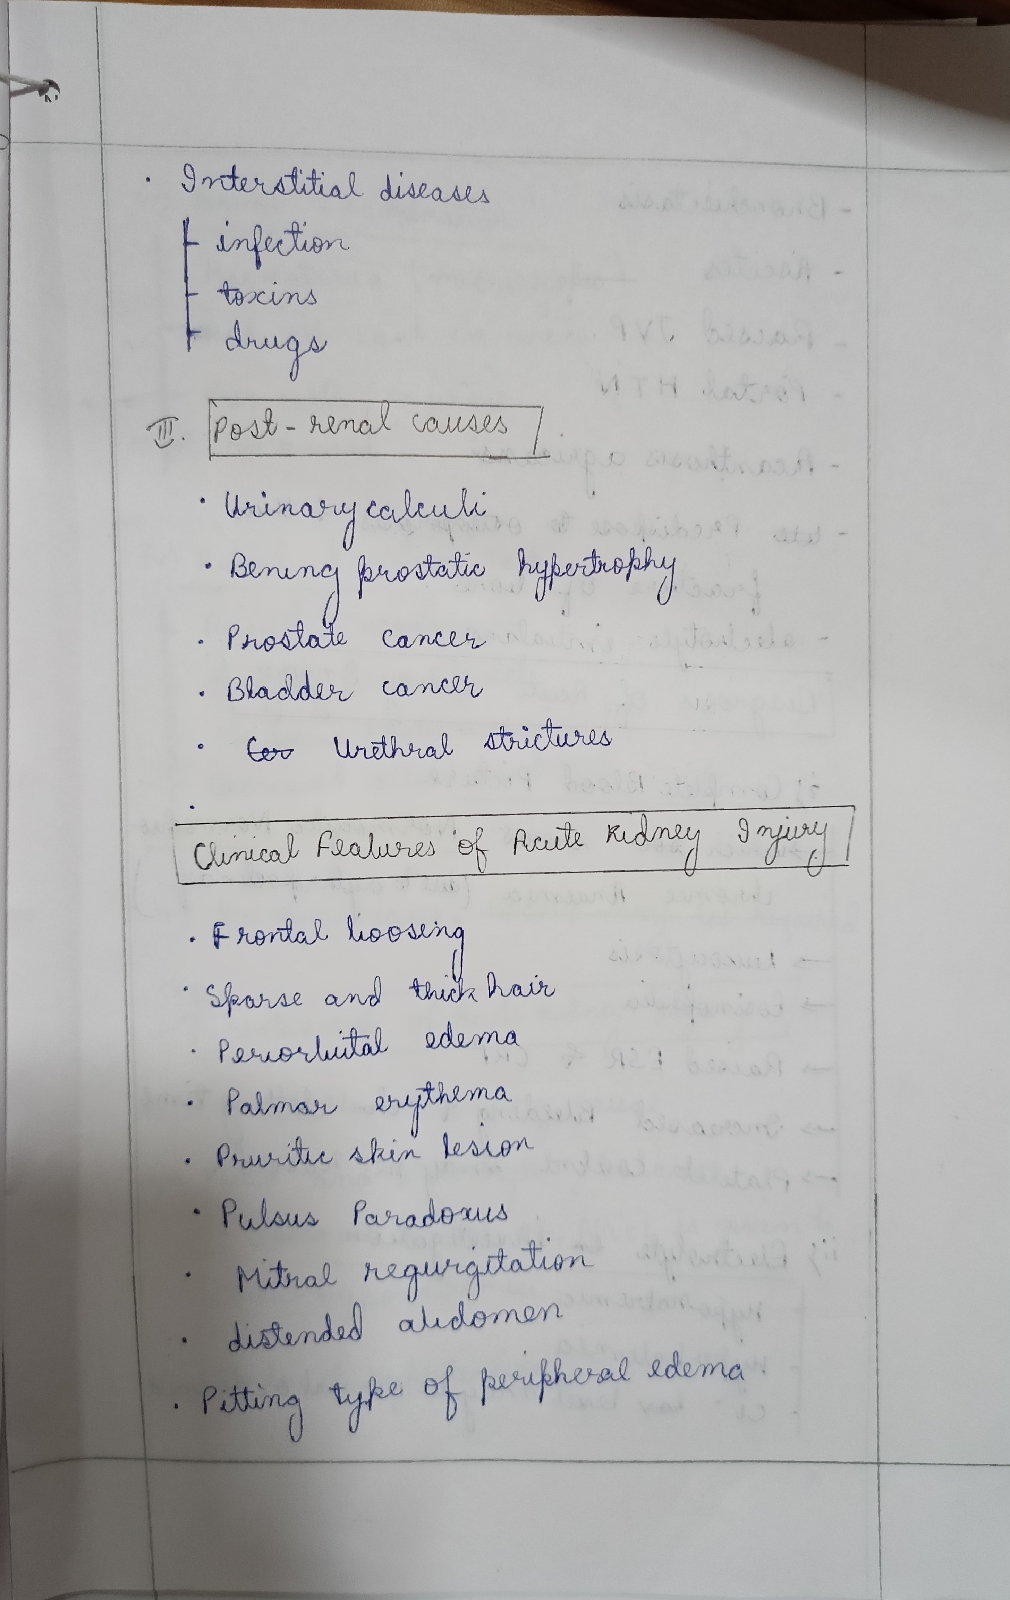 · Interstitial diseases
infection
toxins
drugs
III. Post-renal causes
· Urinary calculi
· Bening prostatic hypertrophy
· Prostate cancer
· Bladder cancer
· Urethral strictures
·
Clinical Features of Acute Kidney Injury
· Frontal boosing
· Sparse and thick hair
· Periorbital edema
· Palmar erythema
· Pruritic skin lesion
· Pulsus Paradoxus
· Mitral regurgitation
· distended abdomen
· Pitting type of peripheral edema.